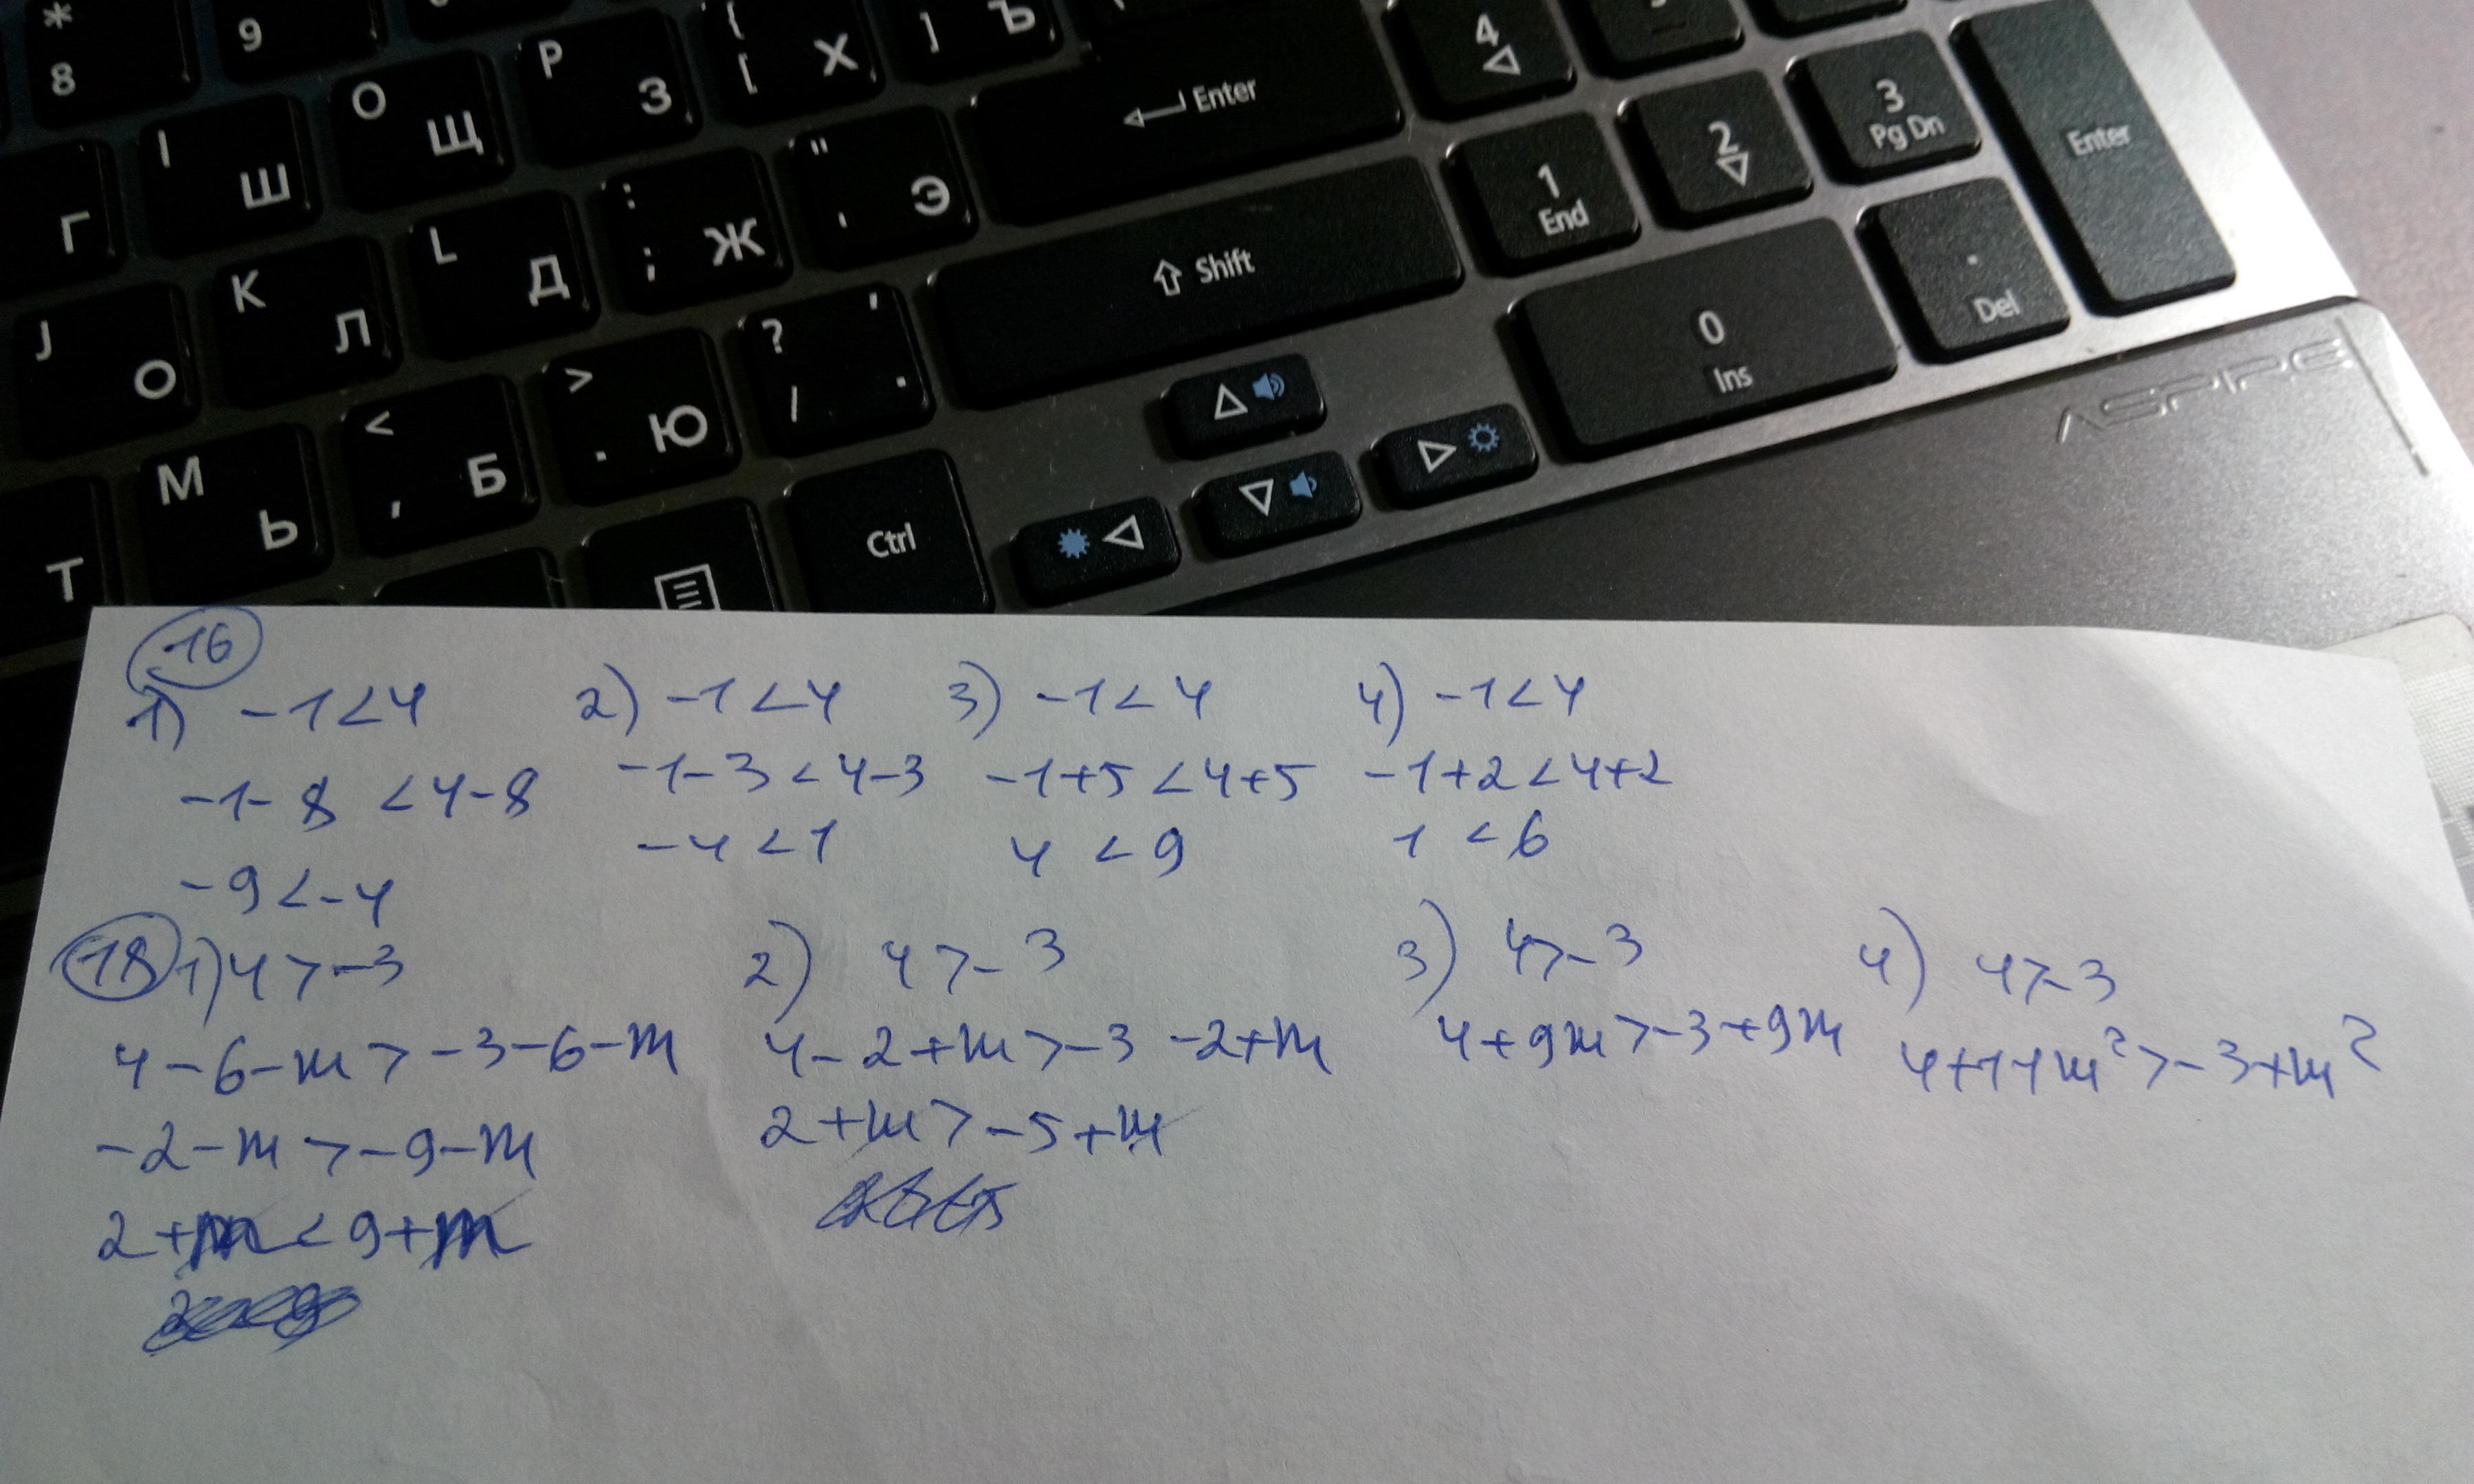 * 8
9
Г
I Ш
O Щ
P З
{ [ Х
] Ъ
Enter
4
J О
K Л
L Д
: ; Ж
" ' Э
Shift
1 End
2
3 Pg Dn
Enter
Т
M Ь
< , Б
> . Ю
? / ' .
Ctrl
0 Ins
. Del
ASPIRE
16
1) -1<4 2) -1<4 3) -1<4 4) -1<4
-1-8<4-8 -1-3<4-3 -1+5<4+5 -1+2<4+2
-9<-4 -4<1 4<9 1<6
18 1) 4>-3 2) 4>-3 3) 4>-3 4) 4>-3
4-6-m>-3-6-m 4-2+m>-3-2+m 4+9m>-3+9m 4+11m²>-3+m²
-2-m>-9-m 2+m>-5+m
2+m<9+m